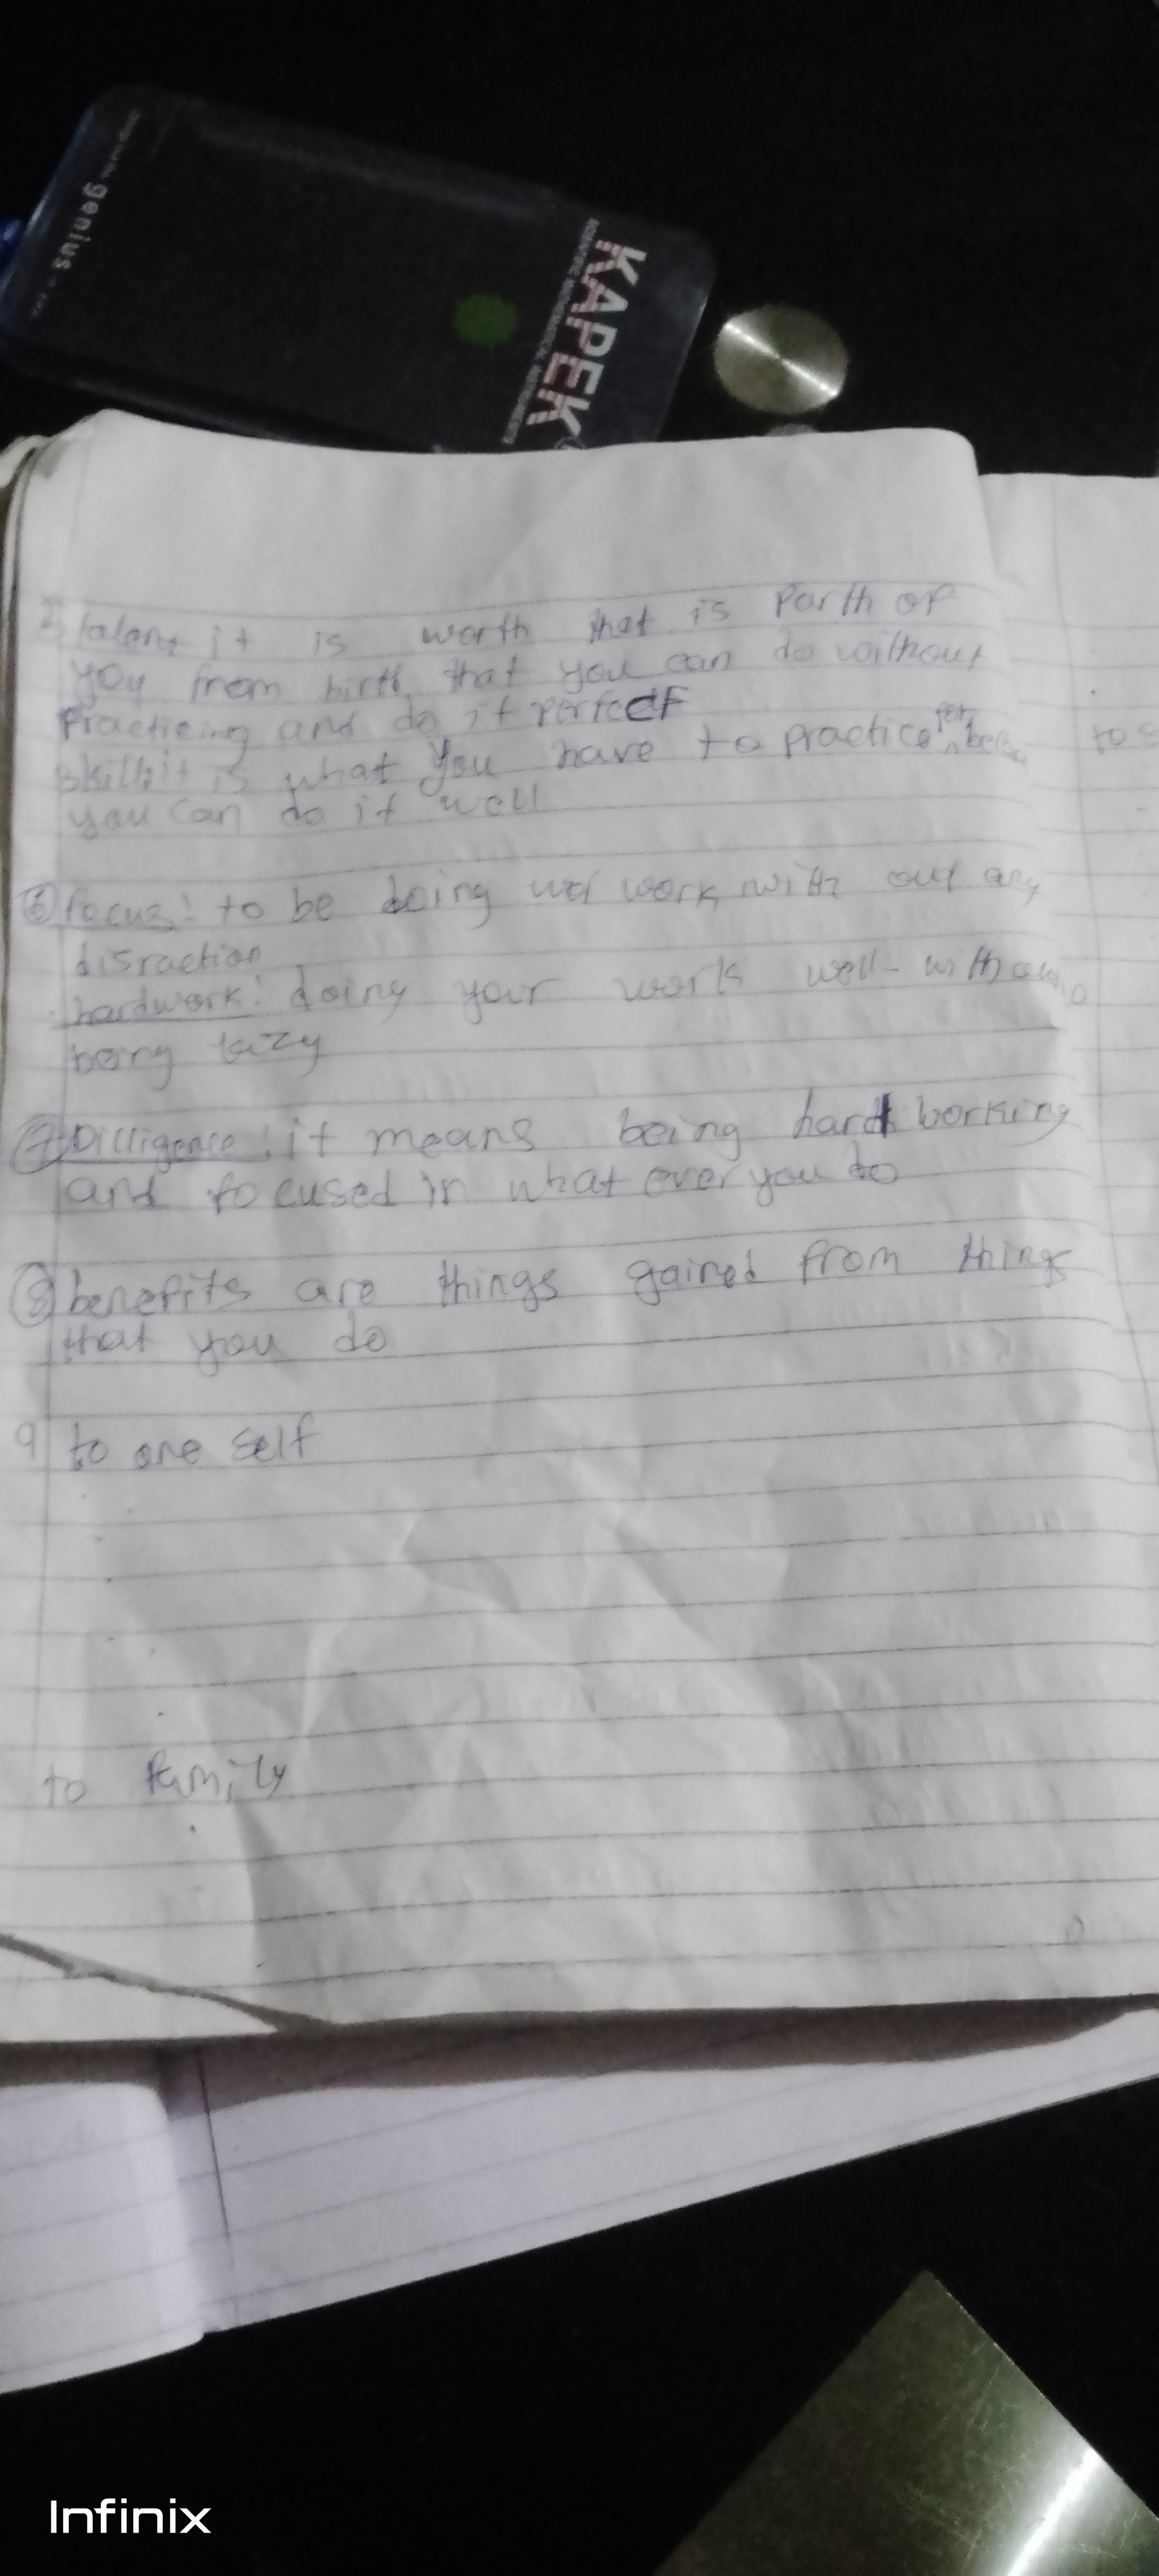 genius
KAPEK
talent it is worth that is Parth of
you from birth that you can do without
Practicing and do it perfect
Skill: it is what you have to practice for before
you can do it well
⑥ focus: to be doing wor work with out any
disraction
hardwork: doing your work well - with out
being lazy
⑦ Dilligence: it means being hard working
and focused in what ever you do
⑧ benefits are things gained from things
that you do
9 to one self
to family
Infinix